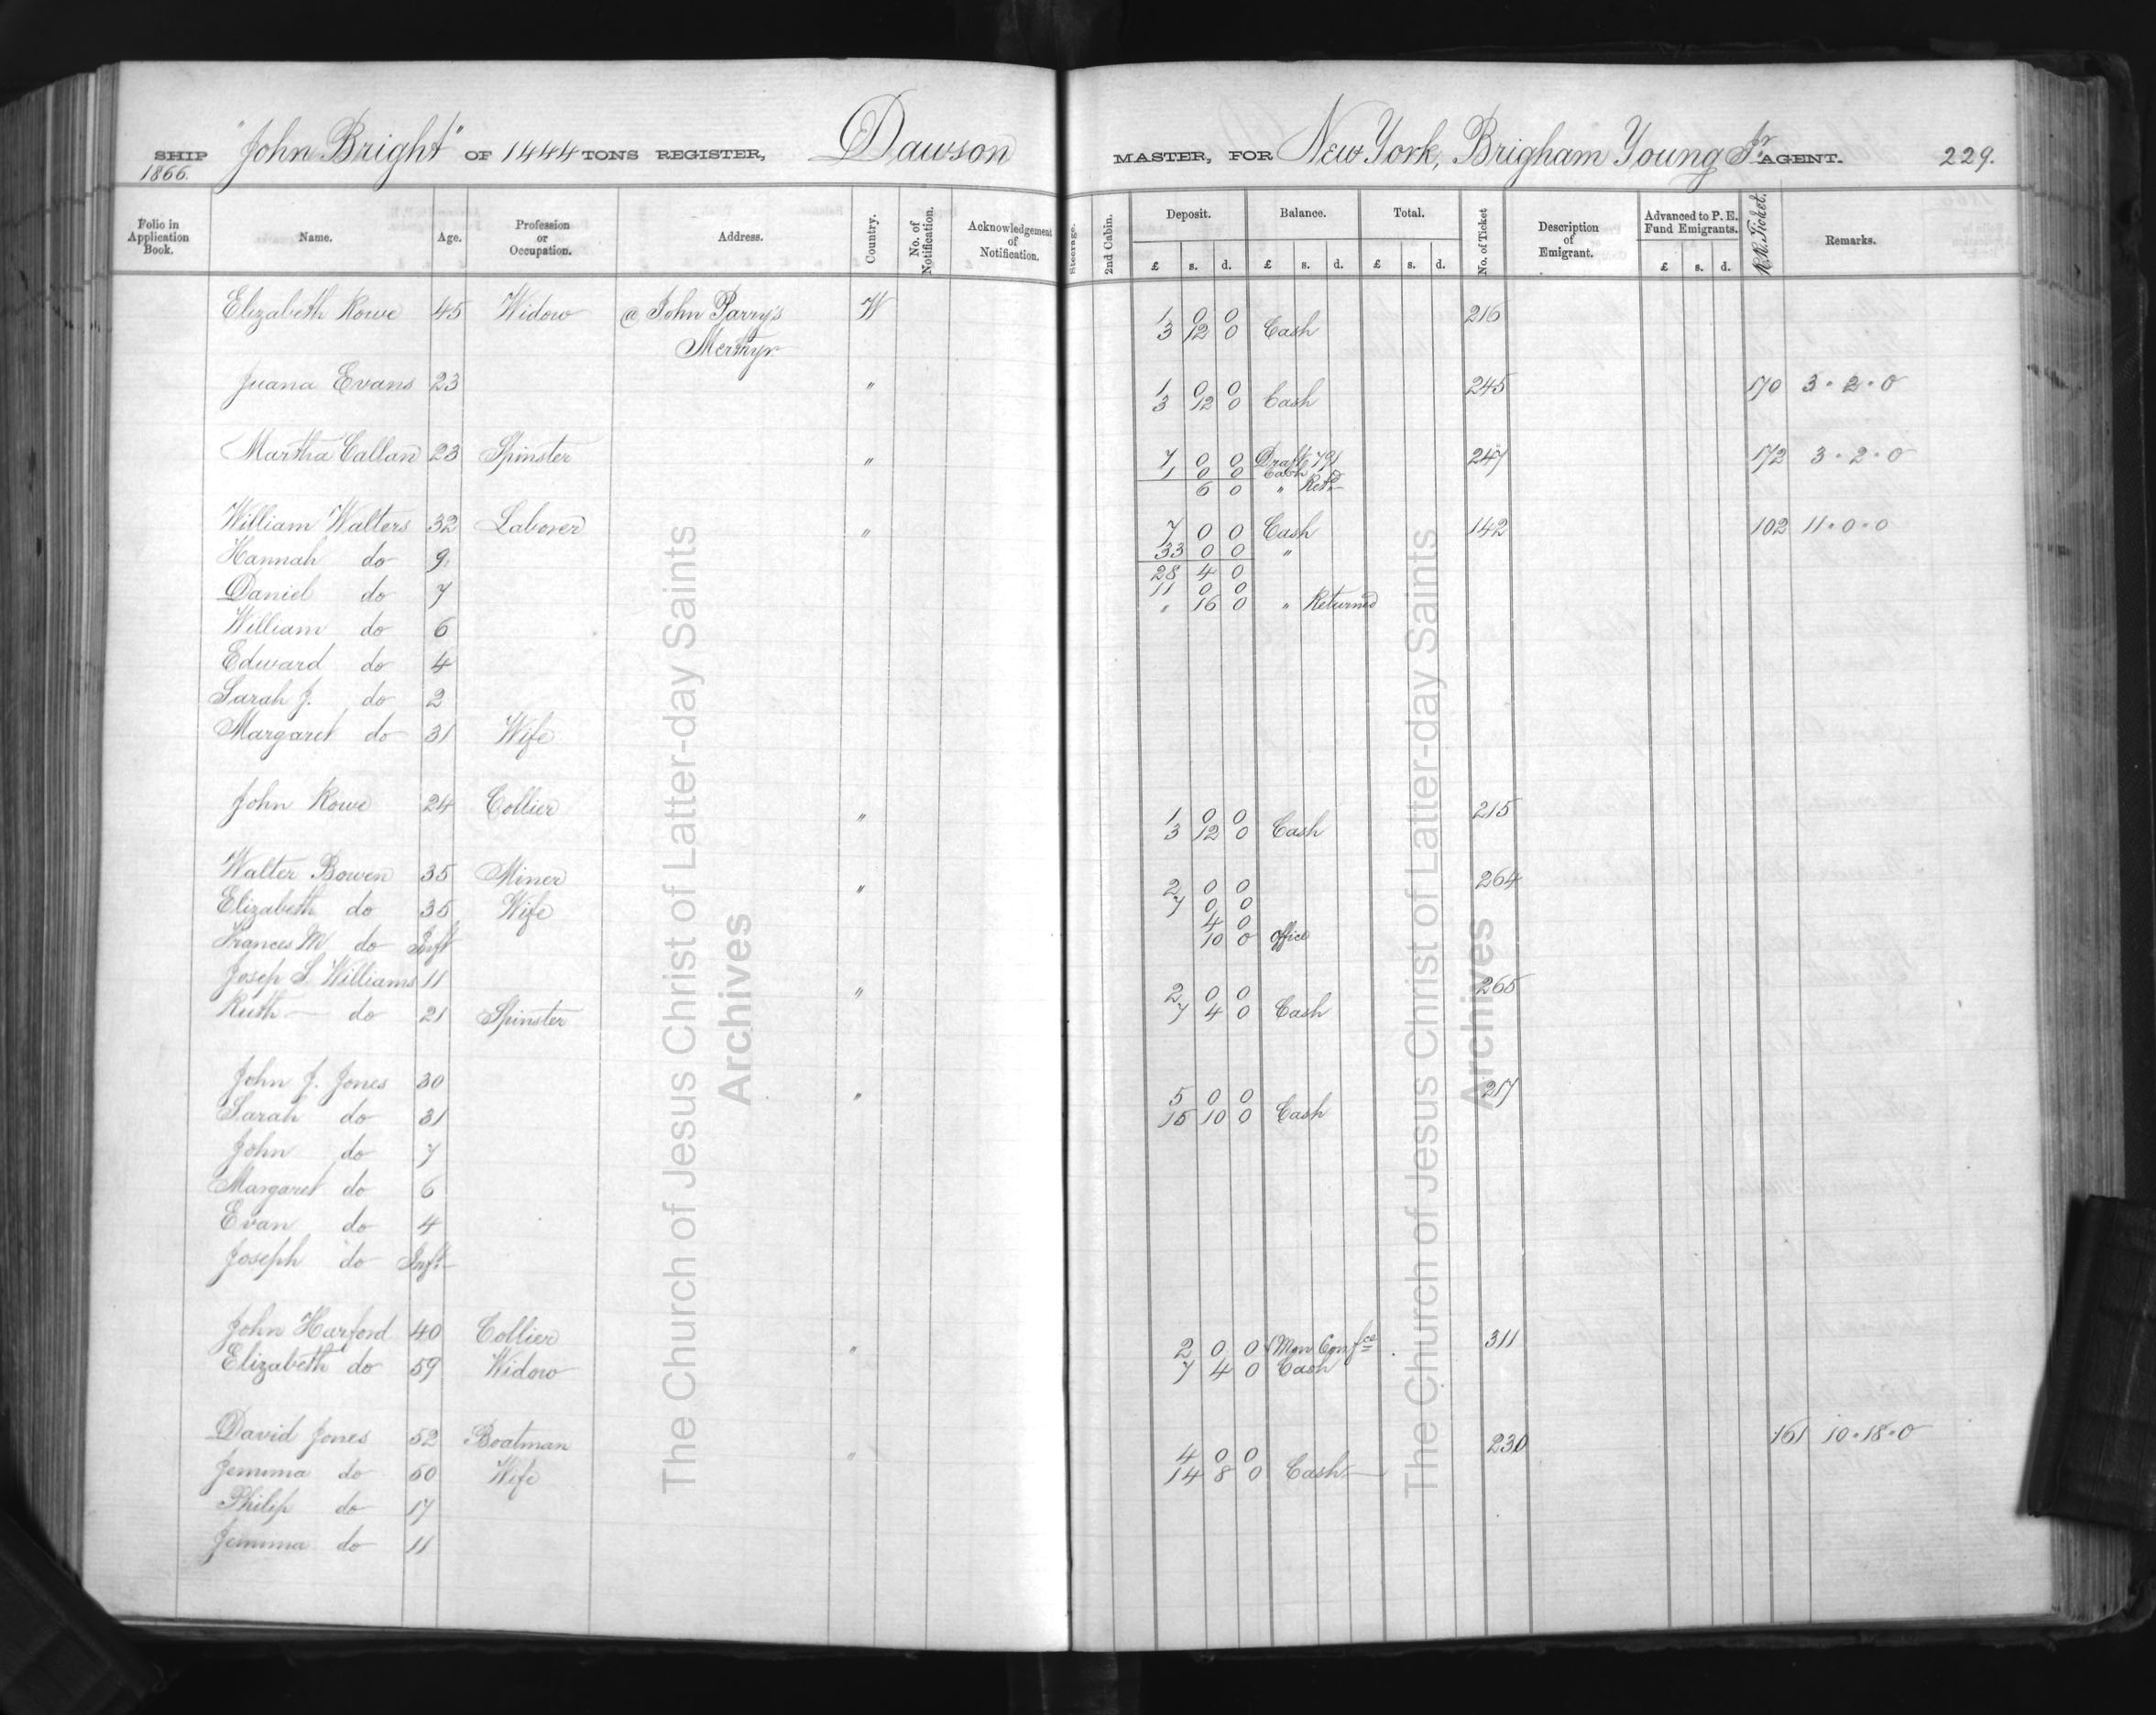 SHIP "John Bright" OF 1444 TONS REGISTER, Dawson MASTER, FOR New York, Brigham Young Jr. AGENT. 229.
1866.
Folio in Application Book. Name. Age. Profession or Occupation. Address. Country. No. of Notification. Acknowledgement of Notification. Steerage. 2nd Cabin. Deposit. £ s. d. Balance. £ s. d. Total. £ s. d. No. of Ticket Description of Emigrant. Advanced to P. E. Fund Emigrants. £ s. d. R.R. Ticket. Remarks.
Elizabeth Rowe 45 Widow @ John Parry's W 1 0 0 216
Merthyr 3 12 0 Cash
Juana Evans 23 " 1 0 0 245 170 3 . 2 . 0
3 12 0 Cash
Martha Callan 23 Spinster " 7 0 0 Draft 791 247 172 3 . 2 . 0
1 0 0 Cash
6 0 " Retd
William Walters 32 Laborer " 7 0 0 Cash 142 102 11 . 0 . 0
Hannah do 9 33 0 0 "
28 4 0
Daniel do 7 11 0 0
" 16 0 " Returned
William do 6
Edward do 4
Sarah J. do 2
Margaret do 31 Wife
John Rowe 24 Collier " 1 0 0 215
3 12 0 Cash
Walter Bowen 35 Miner " 2 0 0 264
Elizabeth do 35 Wife 7 0 0
4 0
Frances M do Inft 10 0 Office
Josep S. Williams 11 " 2 0 0 265
Ruth do 21 Spinster 7 4 0 Cash
John J. Jones 30 " 5 0 0 217
Sarah do 31 15 10 0 Cash
John do 7
Margaret do 6
Evan do 4
Joseph do Inft
John Harford 40 Collier " 2 0 0 Mon Confce 311
Elizabeth do 59 Widow 7 4 0 Cash
David Jones 52 Boatman " 4 0 0 230 161 10 . 18 . 0
Jemima do 50 Wife 14 8 0 Cash
Philip do 17
Jemima do 11
The Church of Jesus Christ of Latter-day Saints
Archives
The Church of Jesus Christ of Latter-day Saints
Archives